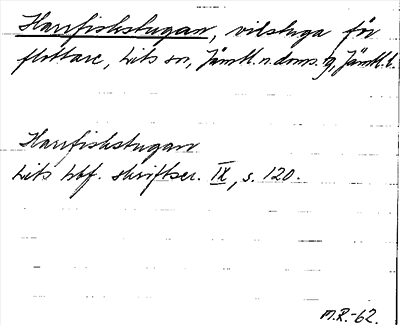 Harrfiskstugan, vilstuga för
flottare, Lits sn, Jämtl. n. doms.g, Jämtl. l.
Harrfiskstugan
Lits hbf. skriftser. IX, s. 120.
M.R.-62.